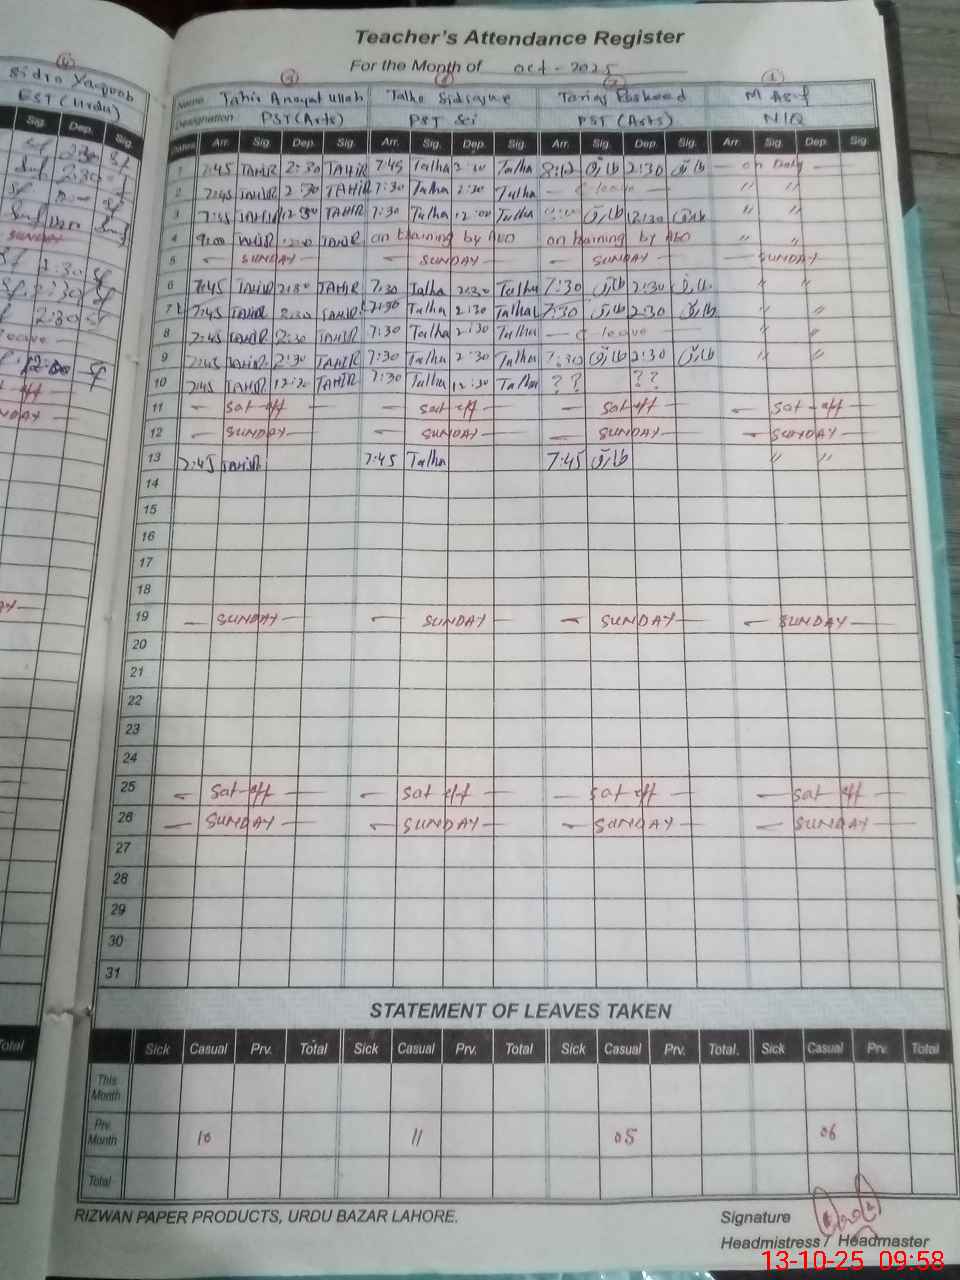 Teacher's Attendance Register
For the Month of Oct - 2025
Sidra Yaqoob
EST (Urdu)
Name Tahir Anayat Ullah Talha Tariq Rasheed M Asif
Designation PST (Arts) PST Sci PST (Arts) N/Q
Dates Arr. Sig. Dep. Sig. Arr. Sig. Dep. Sig. Arr. Sig. Dep. Sig. Arr. Sig. Dep. Sig.
1 7:45 TAHIR 2:30 TAHIR 7:45 Talha 2:30 Talha 8:12 طارق 2:30 طارق on Duty
2 7:45 TAHIR 2:30 TAHIR 7:30 Talha 2:30 Talha — c leave — " "
3 7:45 TAHIR 12:30 TAHIR 7:30 Talha 12:00 Talha طارق 12:30 طارق " "
4 9:00 TAHIR 12:00 TAHIR on training by AEO on training by AEO " "
5 — SUNDAY — — SUNDAY — — SUNDAY — — SUNDAY —
6 7:45 TAHIR 2:30 TAHIR 7:30 Talha 2:30 Talha 7:30 طارق 2:30 طارق " "
7 7:45 TAHIR 2:30 TAHIR 7:30 Talha 2:30 Talha 7:30 طارق 2:30 طارق " "
8 7:45 TAHIR 2:30 TAHIR 7:30 Talha 2:30 Talha — c leave — " "
9 7:45 TAHIR 2:30 TAHIR 7:30 Talha 2:30 Talha 7:30 طارق 2:30 طارق " "
10 7:45 TAHIR 12:30 TAHIR 7:30 Talha 12:30 Talha ? ? ? ?
11 — Sat off — — Sat off — — Sat off — — Sat - off —
12 — SUNDAY — — SUNDAY — — SUNDAY — — SUNDAY —
13 7:45 TAHIR 7:45 Talha 7:45 طارق " "
14
15
16
17
18
19 — SUNDAY — — SUNDAY — — SUNDAY — — SUNDAY —
20
21
22
23
24
25 — Sat-off — — Sat off — — Sat off — — Sat off —
26 — SUNDAY — — SUNDAY — — SUNDAY — — SUNDAY —
27
28
29
30
31
STATEMENT OF LEAVES TAKEN
Sick Casual Prv. Total Sick Casual Prv. Total Sick Casual Prv. Total. Sick Casual Prv. Total
This Month
Prv. Month 10 11 05 06
Total
RIZWAN PAPER PRODUCTS, URDU BAZAR LAHORE.
Signature
Headmistress / Headmaster
13-10-25 09:58